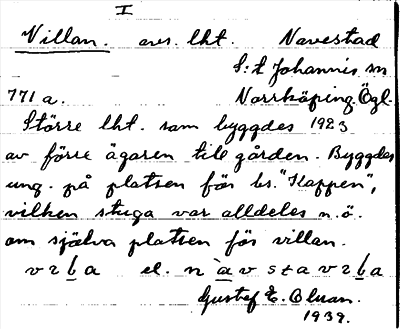 I
Villan. avs. lht. Navestad
S:t Johannis sn
771 a. Norrköping. Ögl.
Större lht. som byggdes 1923
av förre ägaren till gården. Byggdes
ung. på platsen för ls. "Kappen",
vilken stuga var alldeles n.ö.
om själva platsen för villan.
v ɪ l a el. n à v s t a v ɪ l a
Gustaf E. Olsson.
1939.